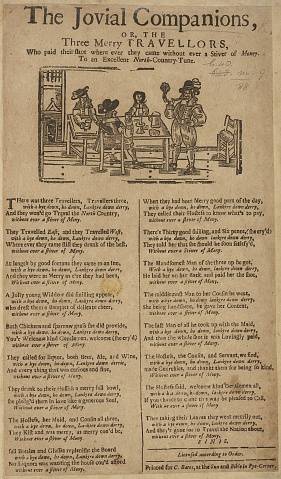 The Jovial Companions,
OR, THE
Three Merry TRAVELLORS,
Who paid their Shot where ever they came without ever a Stiver of Money.
To an Excellent North-Country-Tune.
There was three Travellers, Travellers three,
with a hey down, ho down, Lankre down derry,
And they wou'd go Travel the North Country,
without ever a stiver of Mony.
They Travelled East, and they Travelled West,
with a hey down, ho down, Lankre down derry,
Where ever they came still they drank of the best,
Without ever a stiver of Mony.
At length by good fortune they came to an Inn,
with a hey down, ho down, Lankre down derry,
And they were as Merry as e're they had been,
without ever a stiver of Mony.
A Jolly young Widdow did smiling appear,
with a hey down, ho down, Lankre down derry,
who drest them a Banquet of delicate cheer,
without ever a stiver of Mony.
Both Chickens and Sparrow-grass she did provide,
with a hey down, ho down, Lankre down derry,
You'r Welcome kind Gentlemen, welcome (she cry'd)
without ever a stiver of Mony.
They called for liquor, both Beer, Ale, and Wine,
with a hey down, ho down, Lankre down derry,
And every thing that was curious and fine,
without ever a stiver of Mony.
They drank to their Hostess a merry full bowl,
with a hey down, ho down, Lankre down derry,
She pledg'd them in love like a generous Soul,
Without ever a stiver of Mony.
The Hostess, her Maid, and Cousin all three,
with a hey down, ho down, Lankre down derry,
They Kist and was merry, as merry cou'd be,
Without ever a stiver of Mony.
Full Bottles and Glasses replenisht the Board
with a hey down, ho down, Lankre down derry,
No Liquors was wanting the house cou'd afford
Without ever a stiver of Mony.
When they had been Merry good part of the day,
with a hey down, ho down, Lankre down derry,
They called their Hostess to know what's to pay,
without ever a stiver of Mony.
There's Thirty good shilling, and six pence, (she cry'd)
with a hey down, ho down, Lankre down derry,
They told her that she should be soon satisfy'd,
Without ever a stiver of Mony.
The Handsomest Man of the three up he got,
with a hey down, ho down, Lankre down derry,
He laid her on her Back, and paid her the Shot,
without ever a stiver of Mony.
The middlemost Man to her Cousin he went,
with a hey down, ho down, Lankre down derry,
She being handsome, he gave her Content,
without ever a stiver of Mony.
The last Man of all he took up with the Maid,
with a hey down, ho down, Lankre down derry,
And thus the whole Shot it was Lovingly paid,
without ever a stiver of Mony.
The Hostess, the Cousin, and Servant, we find,
with a hey down, ho down, Lankre down derry,
made Curtsies, and thankt them for being so kind,
Without ever a stiver of Mony.
The Hostess said, welcome kind Gentlemen all,
with a hey down, ho down, Lankre down derry,
If you chance to come this way be pleased to Call,
Without ever a stiver of Mony.
Then taking their Leaves they went merrily out,
with a hey down, ho down, Lankre down derry,
And they're gone for to Travel the Nation about,
without ever a stiver of Mony.
FINIS.
Licensed according to Order.
Printed for C. Bates, at the Sun and Bible in Pye-Corner.